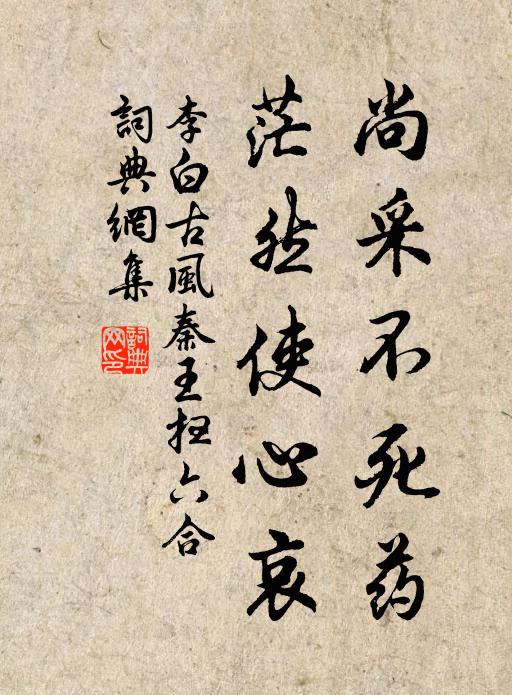 尚采不死药
茫然使心哀
李白古風秦王掃六合
詞典網集
詞典网印